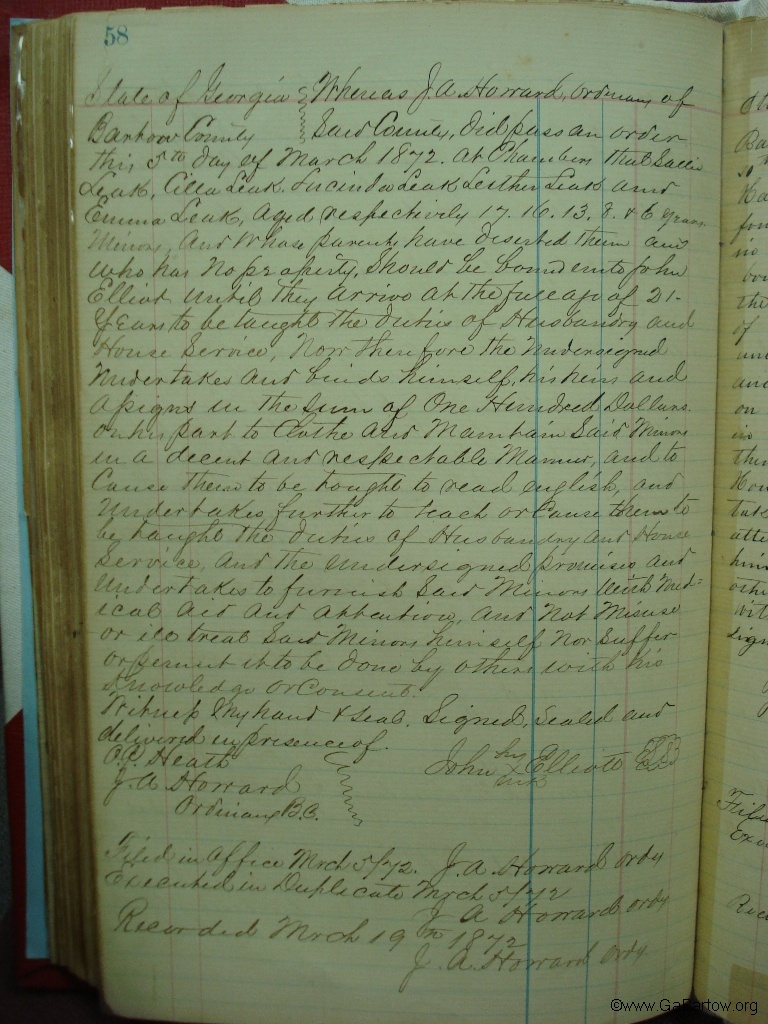 58
State of Georgia Whereas J. A. Howard, ordinary of
Bartow County Said County, did pass an order
this 5th day of March 1872. at Chambers that Sallie
Leak, Cilla Leak. Lucinda Leak Leather Leak and
Emma Leak, aged respectively 17. 16. 13. 8. & 6 years.
Minors, and whose parents have deserted them and
who has no property, should be bound unto John
Elliot until they arrive at the full age of 21-
years to be taught the duties of Husbandry and
House Service, Now therefore the undersigned
undertakes and binds himself, his heirs and
assigns in the sum of One Hundred Dollars.
on his part to Clothe and Maintain Said Minors
in a decent and respectable Manner, and to
Cause them to be tought to read english, and
undertakes further to teach or Cause them to
be taught the duties of Husbandry and House
Service, and the undersigned promises and
undertakes to furnish Said Minors with Med=
ical aid and attention, and not Misuse
or ill treat Said Minors himself nor Suffer
or permit it to be done by others with his
Knowledge or Consent.
Witness My hand & Seal. Signed, Sealed and
delivered in presence of.
Heath
John his mark Elliott
J. A. Howard
Ordinary B.C.
Filed in office Mrch 5/72. J. A. Howard ordy
Executed in Duplicate Mrch 5/72
J A Howard ordy
Recorded Mrch 19th 1872
J. A. Howard ordy
©www.GaBartow.org